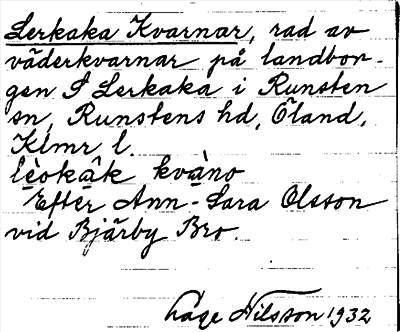 Lerkaka Kvarnar, rad av
väderkvarnar på landbor-
gen S Lerkaka i Runsten
sn, Runstens hd, Öland,
Klmr l.
lèokâk kvàno
Efter Ann-Sara Olsson
vid Bjärby Bro.
Låge Nilsson 1932